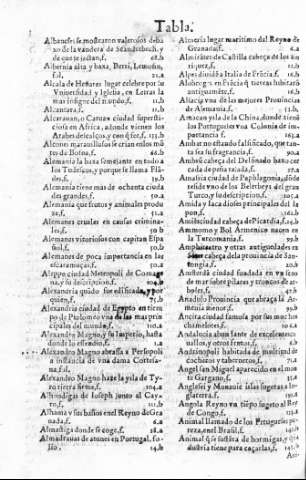 Tabla.
Albaneses se mostraron valerosos debaxo
de la vandera de Scanderbech, y
de que se jactan, f. 68.b
Albernia alta y baxa, Berri, Lemosin,
f.il. 21.a
Alcala de Henares lugar celebre por su
Vniuersidad y Iglesia, en Letras la
mas insigne del mundo, f. 11.b
Alcantara, f. 11.b
Alcorauan, o Caruan ciudad supersticiosa
en Africa, adonde vienen los
Arabes
Alcones marauillosos se crian en los
de Biona, f. 66.b
Alemania la baxa semejante en todo a
los Tudescos, y porque se llama Flandes,
f. 19.b
Alemania tiene mas de ochenta ciudades
grandes, f. 50.a
Alemania que frutos y animales produze,
f. 51.a
Alemanes crueles en causas criminales,
f. 51.b
Alemanes vitoriosos con capitan Español,
f. 50.b
Alemanes de poca importancia en las
escaramuças, f. 50.b
Aleppo ciudad Metropoli de Comagena,
y su descripcion, f. 104.b
Alexandria quido fue edificada, y por
quien, f. 75.b
Alexandria ciudad de Egypto en tiempo
de Ptolomeo vna de las mas principales
del mundo, f. 110.a
Alexandro Magno, y su Imperio, hasta
donde se estendio, f. 1.a
Alexandro Magno abrassa a Persepoli
a instancia de vna dama Cortesana,
f.il.
Alexandro Magno haze la ysla de Tyro
tierra firme, f. 104.a
Alhondigas de Ioseph junto al Cayro,
f. 111.b
Alhama y sus baños en el Reyno de Granada,
f. 6.b
Almastiga donde se coge, f. 28.a
Almadrauas de atunes en Portugal, folio,
14.b
Almeria lugar maritimo del Reyno de
Granada, f. 6.a
Almirante de Castilla cabeça de los
f. 12.b
Alpes diuidē a Italia de Frācia, f. 16.b
Alobroges en Frācia q̄ tierras habitarō
antiguamente, f. 16.b
Alsacia vna de las mejores Prouincias
de Alemania, f. 53.b
Amacan ysla de la China, donde tienē
los Portugueses vna Colonia de importancia
f. 163.a
Ambar no estando falsificado, que tanta
sea su fragrancia, f. 90.a
Ambū cabeça del Delfinado baxo cercada
de peña tajada, f. 27.a
Amasia ciudad de Paphlagonia, dōde
reside vno de los Belerbeys del gran
Turco, y su descripcion, 105.a
Amida y Laca dioses principales del Iapon,
f. 164.b
Amiēs ciudad cabeça de Picardia, f. 24.b
Ammomo y Bol Armenico nacen en
la Turcomania, f. 99.b
Amphiteatro y otras antiguedades en
cabeça dela prouincia de Santongia,
f. 20.b
Amsterdā ciudad fundada en vn seno
de mar sobre pilares y troncos de arboles,
f. 47.b
Anadolo Prouincia que abraça la Armenia
menor, f. 99.b
Ancira ciudad famosa por sus muchos
chamelotes, f. 106.a
Andaluzia abundante de excelentes nouillos,
y otros frutos, f. 6.b
Andrinopoli habitada de multitud de
cochieros y taberneros, f. 71.a
Angel san Miguel aparecido en el monte
Gargano, f. 35.a
Anglesei y Monauie islas sugetas a Inglaterra,
f. 150.a
Angola Reyno vn tiēpo sugeto al Rey
de Congo, f. 123.a
Animal llamado de los Pitugueses pereza
en el Brasil, f. 142.b
Animal q̄ se sustēta de hormigas, y q̄ industria
tiene para caçarlas, f. 142.b